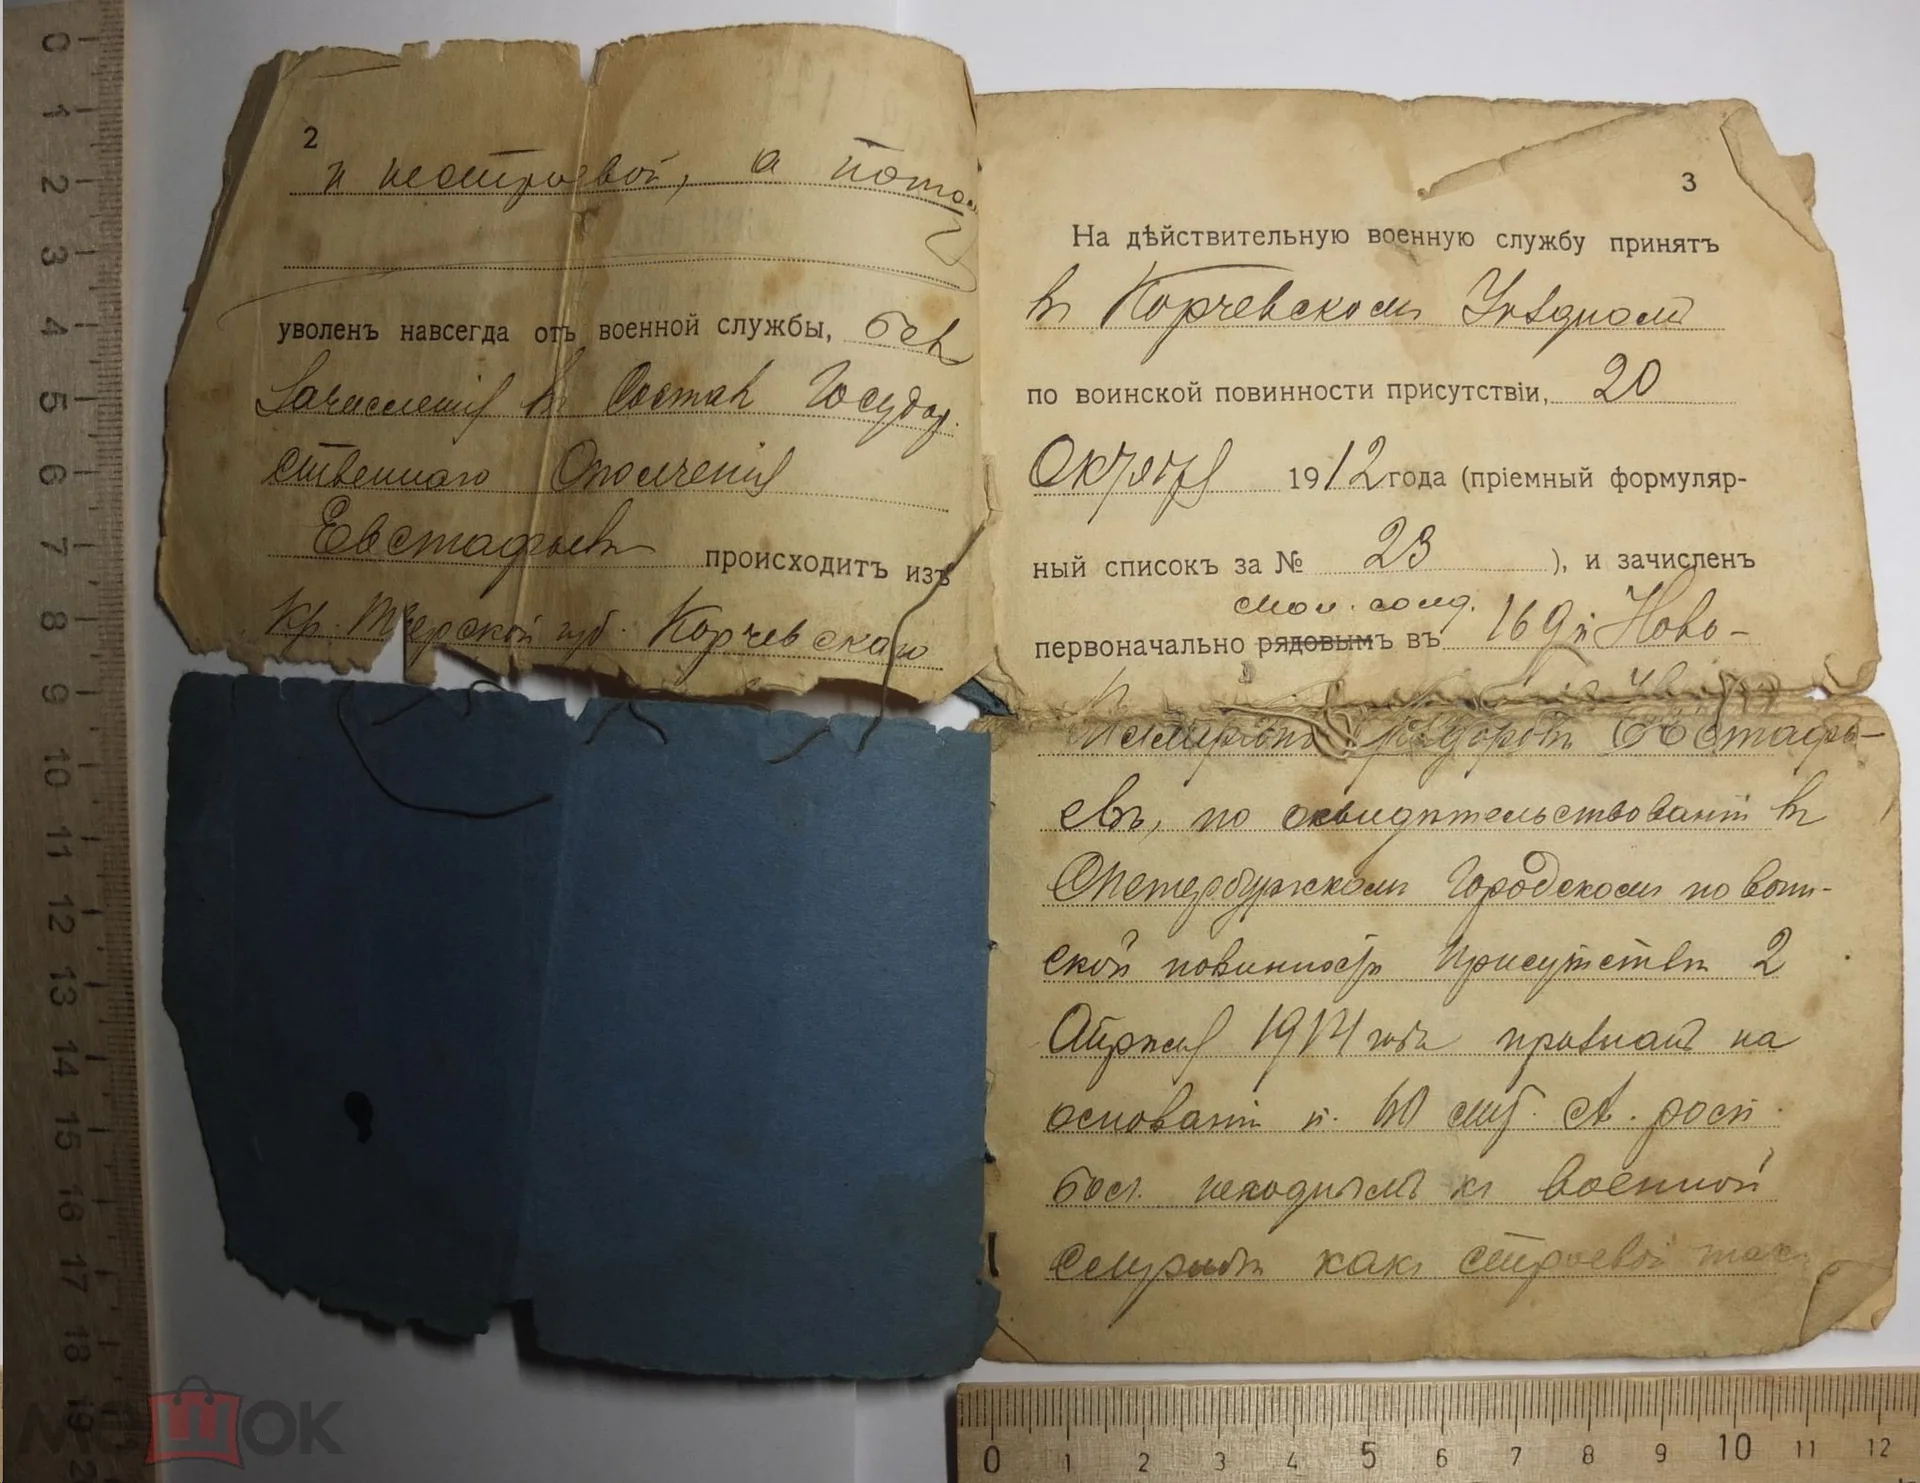 2
и нестроевой, а потом
у
уволенъ навсегда отъ военной службы, безъ
Зачисленія въ Составъ Государ
ственнаго Ополченія
Евстафьевъ происходитъ изъ
Кр. Тверской губ. Корчевскаго
3
На дѣйствительную военную службу принятъ
въ Корчевскомъ Уѣздномъ
по воинской повинности присутствіи, 20
Октября 1912 года (пріемный формуляр-
ный списокъ за № 23 ), и зачисленъ
мол. солд.
первоначально рядовымъ въ 169й Ново-
Евстафь-
евъ, по освидѣтельствованіи въ
СПетербургскомъ Городскомъ по воин-
ской повинности Присутствіи 2
Апрѣля 1914 года признанъ на
основаніи п. лит. А. росп.
бол. негоднымъ къ военной
службѣ какъ строевой такъ
0 1 2 3 4 5 6 7 8 9 10 11 12 13 14 15 16 17 18 19 2
0 1 2 3 4 5 6 7 8 9 10 11 12
мешок